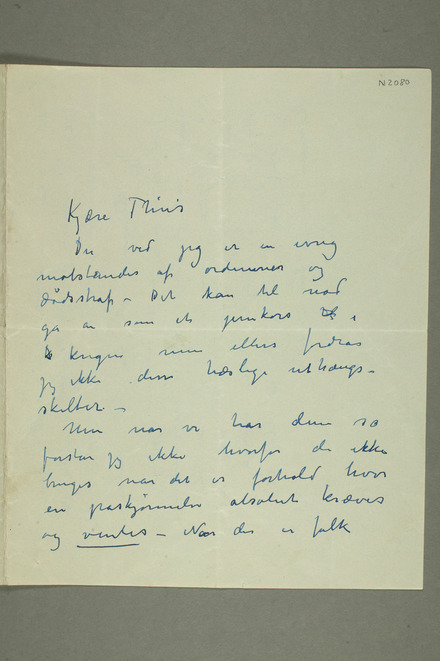 N 2080
Kjære Thiis
Du ved jeg er en ivrig
motstander af ordnener og
dødsstraf – Det kan til nød
gå an som et jernkors i
krigen men ellers fordrar
jeg ikke disse hæslige uthængs-
skilter –
Men når vi har dem så
forstår jeg ikke hvorfor de ikke
bruges når det er forhold hvor
en påskjønnelse absolut kræves
og ventes – Når der er folk